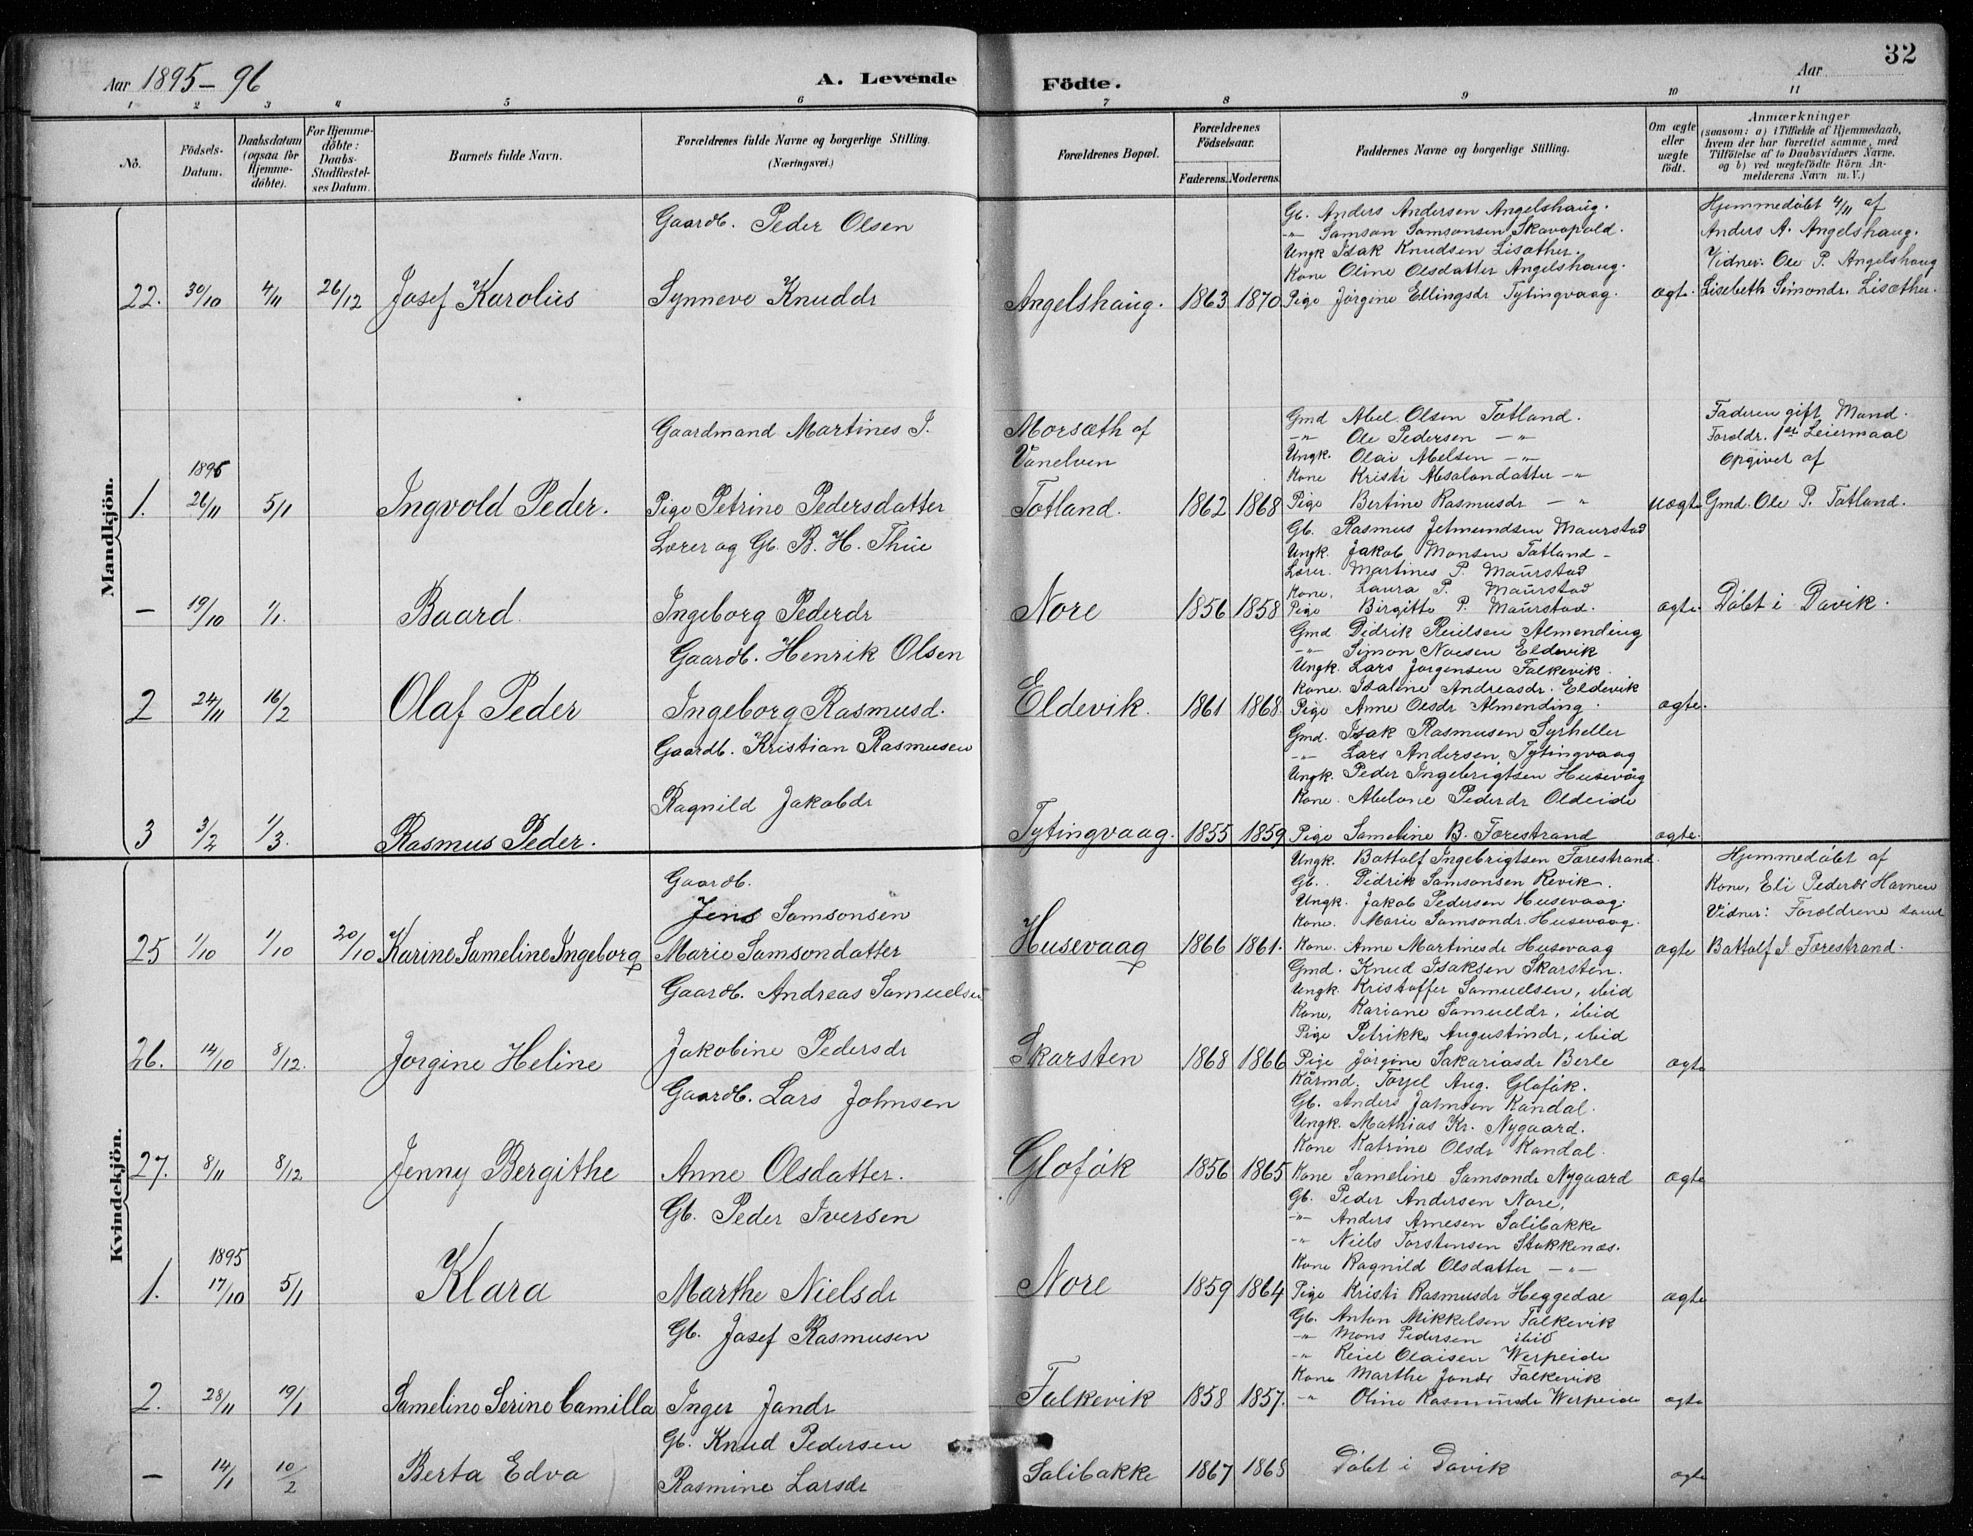 Aar 1895-96
A. Levende
Födte.
Aar
32
1 2 3 4 5 6 7 8 9 10 11
No.
Födsels-Datum.
Daabsdatum (ogsaa for Hjemme-döbte).
For Hjemme-döbte: Daabs-Stadfæstel-ses Datum.
Barnets fulde Navn.
Forældrenes fulde Navne og borgerlige Stilling. (Næringsvei.)
Forældrenes Bopæl.
Forældrenes Födselsaar.
Faderens. Moderens.
Faddernes Navne og borgerlige Stilling.
Om ægte eller uægte födt.
Anmærkninger
(saasom: a) i Tilfælde af Hjemmedaab, hvem der har forrettet samme, med Tilföielse af to Daabsvidners Navne, og b) ved uægtefödte Börn Anmelderens Navn m. V.)
Mandkjön.
22. 30/10 4/11 26/12 Josef Karolius
Gaardb. Peder Olsen
Synneve Knuddr
Angelshaug. 1863 1870
Gb. Anders Andersen Angelshaug.
-"- Samson Samsonsen Skavopold.
Ungk Isak Knudsen Lisæther.
Kone Oline Olsdatter Angelshaug.
Pige Jörgine Ellingsdr Tytingvaag.
ægte.
Hjemmedöbt 4/11 af
Anders A. Angelshaug.
Vidner: Ole P. Angelshaug
Lisebeth Simondr. Lisæther.
1. 1895 26/11 5/1 Ingvold Peder.
Gaardmand Martines J.
Pige Petrine Pedersdatter
Morsæth af
Vanelven
Totland. 1862 1868
Gmd Abel Olsen Totland.
-"- Ole Pedersen -"-
Ungk. Olai Abelsen -"-
Kone Kristi Absalondatter -"-
Pige Bertine Rasmusdr -"-
uægte
Faderen gift Mand.
Foreldr. 1ste Leiermaal
Opgivet af
Gmd. Ole P. Totland.
- 19/10 1/1. Baard.
Lærer og Gb. B. H. Thue
Ingeborg Pederdr
Nore 1856 1858
Gb. Rasmus Jetmundsen Maurstad
Ungk. Jakob Monsen Totland -
Lærer. Martines P. Maurstad
Kone. Laura P. Maurstad
Pige Birgitte P. Maurstad.
ægte. Döbt i Davik.
2 24/11 16/2 Olaf Peder
Gaardb. Henrik Olsen
Ingeborg Rasmusd.
Eldevik. 1861 1868.
Gmd Didrik Reielsen Almending
-"- Simon Noesen Eldevik
Ungk. Lars Jörgensen Falkevik.
Kone. Isaline Andreasdr. Eldevik
Pige Anne Olsdr Almending.
ægte.
3 3/2 1/3. Rasmus Peder.
Gaardb. Kristian Rasmusen
Ragnild Jakobdr
Tytingvaag. 1855 1859
Gmd. Isak Rasmusen Syrheller
-"- Lars Andersen, Tytingvaag
Ungk. Peder Ingebrigtsen Husevåg
Kone. Abelone Pederdr Oldeide
Pige Sameline B. Færestrand
ægte.
Kvindekjön.
25 1/10 1/10 20/10 Karine Sameline Ingeborg
Gaardb.
Jens Samsonsen
Marie Samsondatter
Husevaag 1866 1861.
Ungk. Battolf Ingebrigtsen Færestrand.
Gb. Didrik Samsonsen Revik.
Ungk. Jakob Pedersen Husevaag.
Kone. Marie Samsondr. Husevaag.
Kone. Anne Martinesdr Husevaag
ægte
Hjemmedöbt af
Kone, Eli Pederdr Havnen
Vidner: Forældrene samt
Battolf I Færestrand.
26. 14/10 8/12. Jorgine Heline
Gaardb. Andreas Samuelsen
Jakobine Pedersdr
Skarsten 1868 1866
Gmd. Knud Isaksen Skarsten.
Ungk. Kristoffer Samuelsen, ibid
Kone, Kariane Samueldr, ibid
Pige Petrikke Augustindr, ibid
Pige Jörgine Sakariasdr Berle
ægte
27. 8/11 8/12 Jenny Bergithe
Gaardb. Lars Johnsen
Anne Olsdatter.
Glofök 1856 1865
Kårmd. Torjel Aug. Glofök.
Gb. Anders Johnsen Kandal.
Ungk. Mathias Kr. Nygaard.
Kone Katrine Olsdr Kandal.
Kone Sameline Samsondr Nygaard
ægte
1. 1895 17/10 5/1 Klara
Gb. Peder Iversen
Marthe Nielsdr
Nore 1859 1864
Gb. Peder Andersen Nore,
-"- Anders Arnesen Salibakke
-"- Niels Torstensen Stokkenæs.
Kone Ragnild Olsdatter -"-
Pige Kristi Rasmusdr Heggedal
ægte
2. 28/11 19/1 Sameline Serine Camilla
Gb. Josef Rasmusen
Inger Jondr
Falkevik 1858 1857.
Gb. Anton Mikkelsen Falkevik
-"- Mons Pedersen ibid
-"- Reiel Olaisen Werpeide
Kone Marthe Jondr Falkevik
-"- Oline Rasmusdr Werpeide
ægte
- 14/1 10/2 Berta Edva
Gb. Knud Pedersen
Rasmine Larsdr
Salibakke 1867 1868
Döbt i Davik
ægte